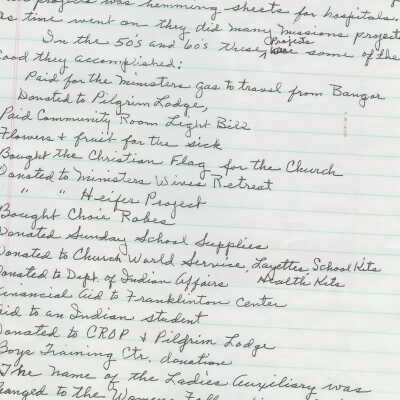 projects was hemming sheets for hospitals.
As time went on they did many missions project
In the 50's and 60's these projects are some of the
Good they accomplished:
Paid for the ministers gas to travel from Bangor
Donated to Pilgrim Lodge,
Paid Community Room Light Bill
Flowers & fruit for the sick
Bought the Christian Flag for the Church
Donated to Ministers Wives Retreat
" " Heifer Project
Bought Choir Robes
Donated Sunday School Supplies
Donated to Church World Service, Layettes, School Kits
Donated to Dept. of Indian Affairs Health Kits
Financial aid to Franklinton Center
aid to an Indian student
Donated to CROP & Pilgrim Lodge
Boys Training Ctr. donation
The name of the Ladies Auxiliary was
changed to the Womens